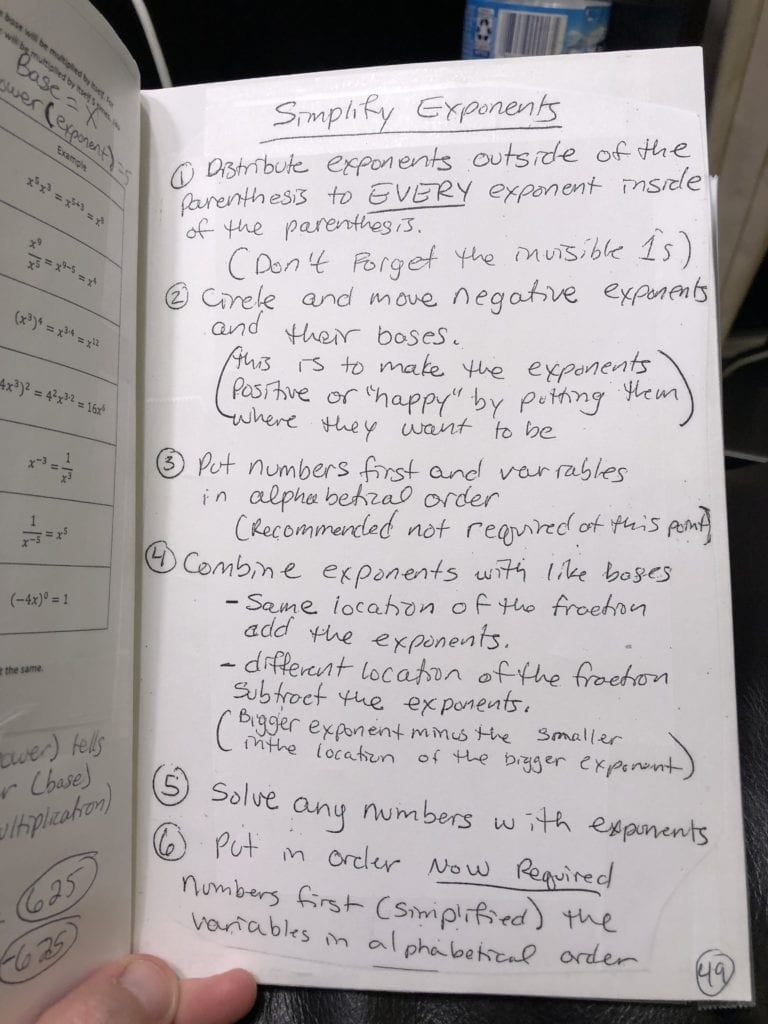 base will be multiplied by itself. For
will be multiplied by itself 5 times.
Base = x
ower (exponent) = 5
Example
x⁵x³ = x⁵⁺³ = x⁸
x⁹/x⁵ = x⁹⁻⁵ = x⁴
(x³)⁴ = x³·⁴ = x¹²
4x³)² = 4²x³·² = 16x⁶
x⁻³ = 1/x³
1/x⁻⁵ = x⁵
(−4x)⁰ = 1
the same.
ower) tells
r (base)
ultiplication)
625
-625
Simplify Exponents
① Distribute exponents outside of the
parenthesis to EVERY exponent inside
of the parenthesis.
(Don't Forget the invisible 1s)
② Circle and move negative exponents
and their bases.
(this is to make the exponents
Positive or "happy" by putting them
where they want to be)
③ Put numbers first and variables
in alphabetical order
(Recommended not required at this point)
④ Combine exponents with like bases
- Same location of the fraction
add the exponents.
- different location of the fraction
Subtract the exponents.
(Bigger exponent minus the smaller
in the location of the bigger exponent)
⑤ Solve any numbers with exponents
⑥ Put in order Now Required
numbers first (simplified) the
variables in alphabetical order
49